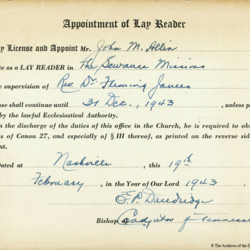 Appointment of Lay Reader
y License and Appoint Mr. John M. Allin
te as a LAY READER in The Sewanee Missions
e supervision of Rev. Dr. Fleming James
se shall continue until 31 Dec., 1943, unless p
by the lawful Ecclesiastical Authority.
n the discharge of the duties of this office in the Church, he is required to ob
s of Canon 27, and especially of § III thereof, as printed on the reverse sid
nt.
Dated at Nashville this 19th
February, in the Year of Our Lord 1943
E. P. Dandridge
Bishop Coadjutor of Tennessee
© The Archives of the E